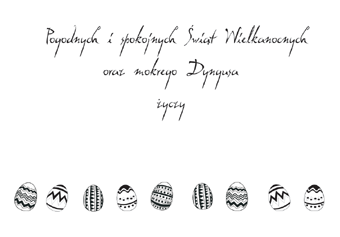 Pogodnych i spokojnych Świąt Wielkanocnych
oraz mokrego Dyngusa
życzy